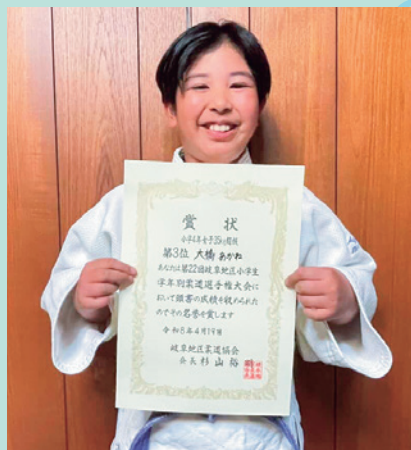 賞状
小学4年女子35kg超級
第3位 大橋 あかね
あなたは第22回岐阜地区小学生
学年別柔道選手権大会に
おいて頭書の成績を収められた
のでその名誉を賞します
令和8年4月19日
岐阜地区柔道協会
会長 杉山 裕